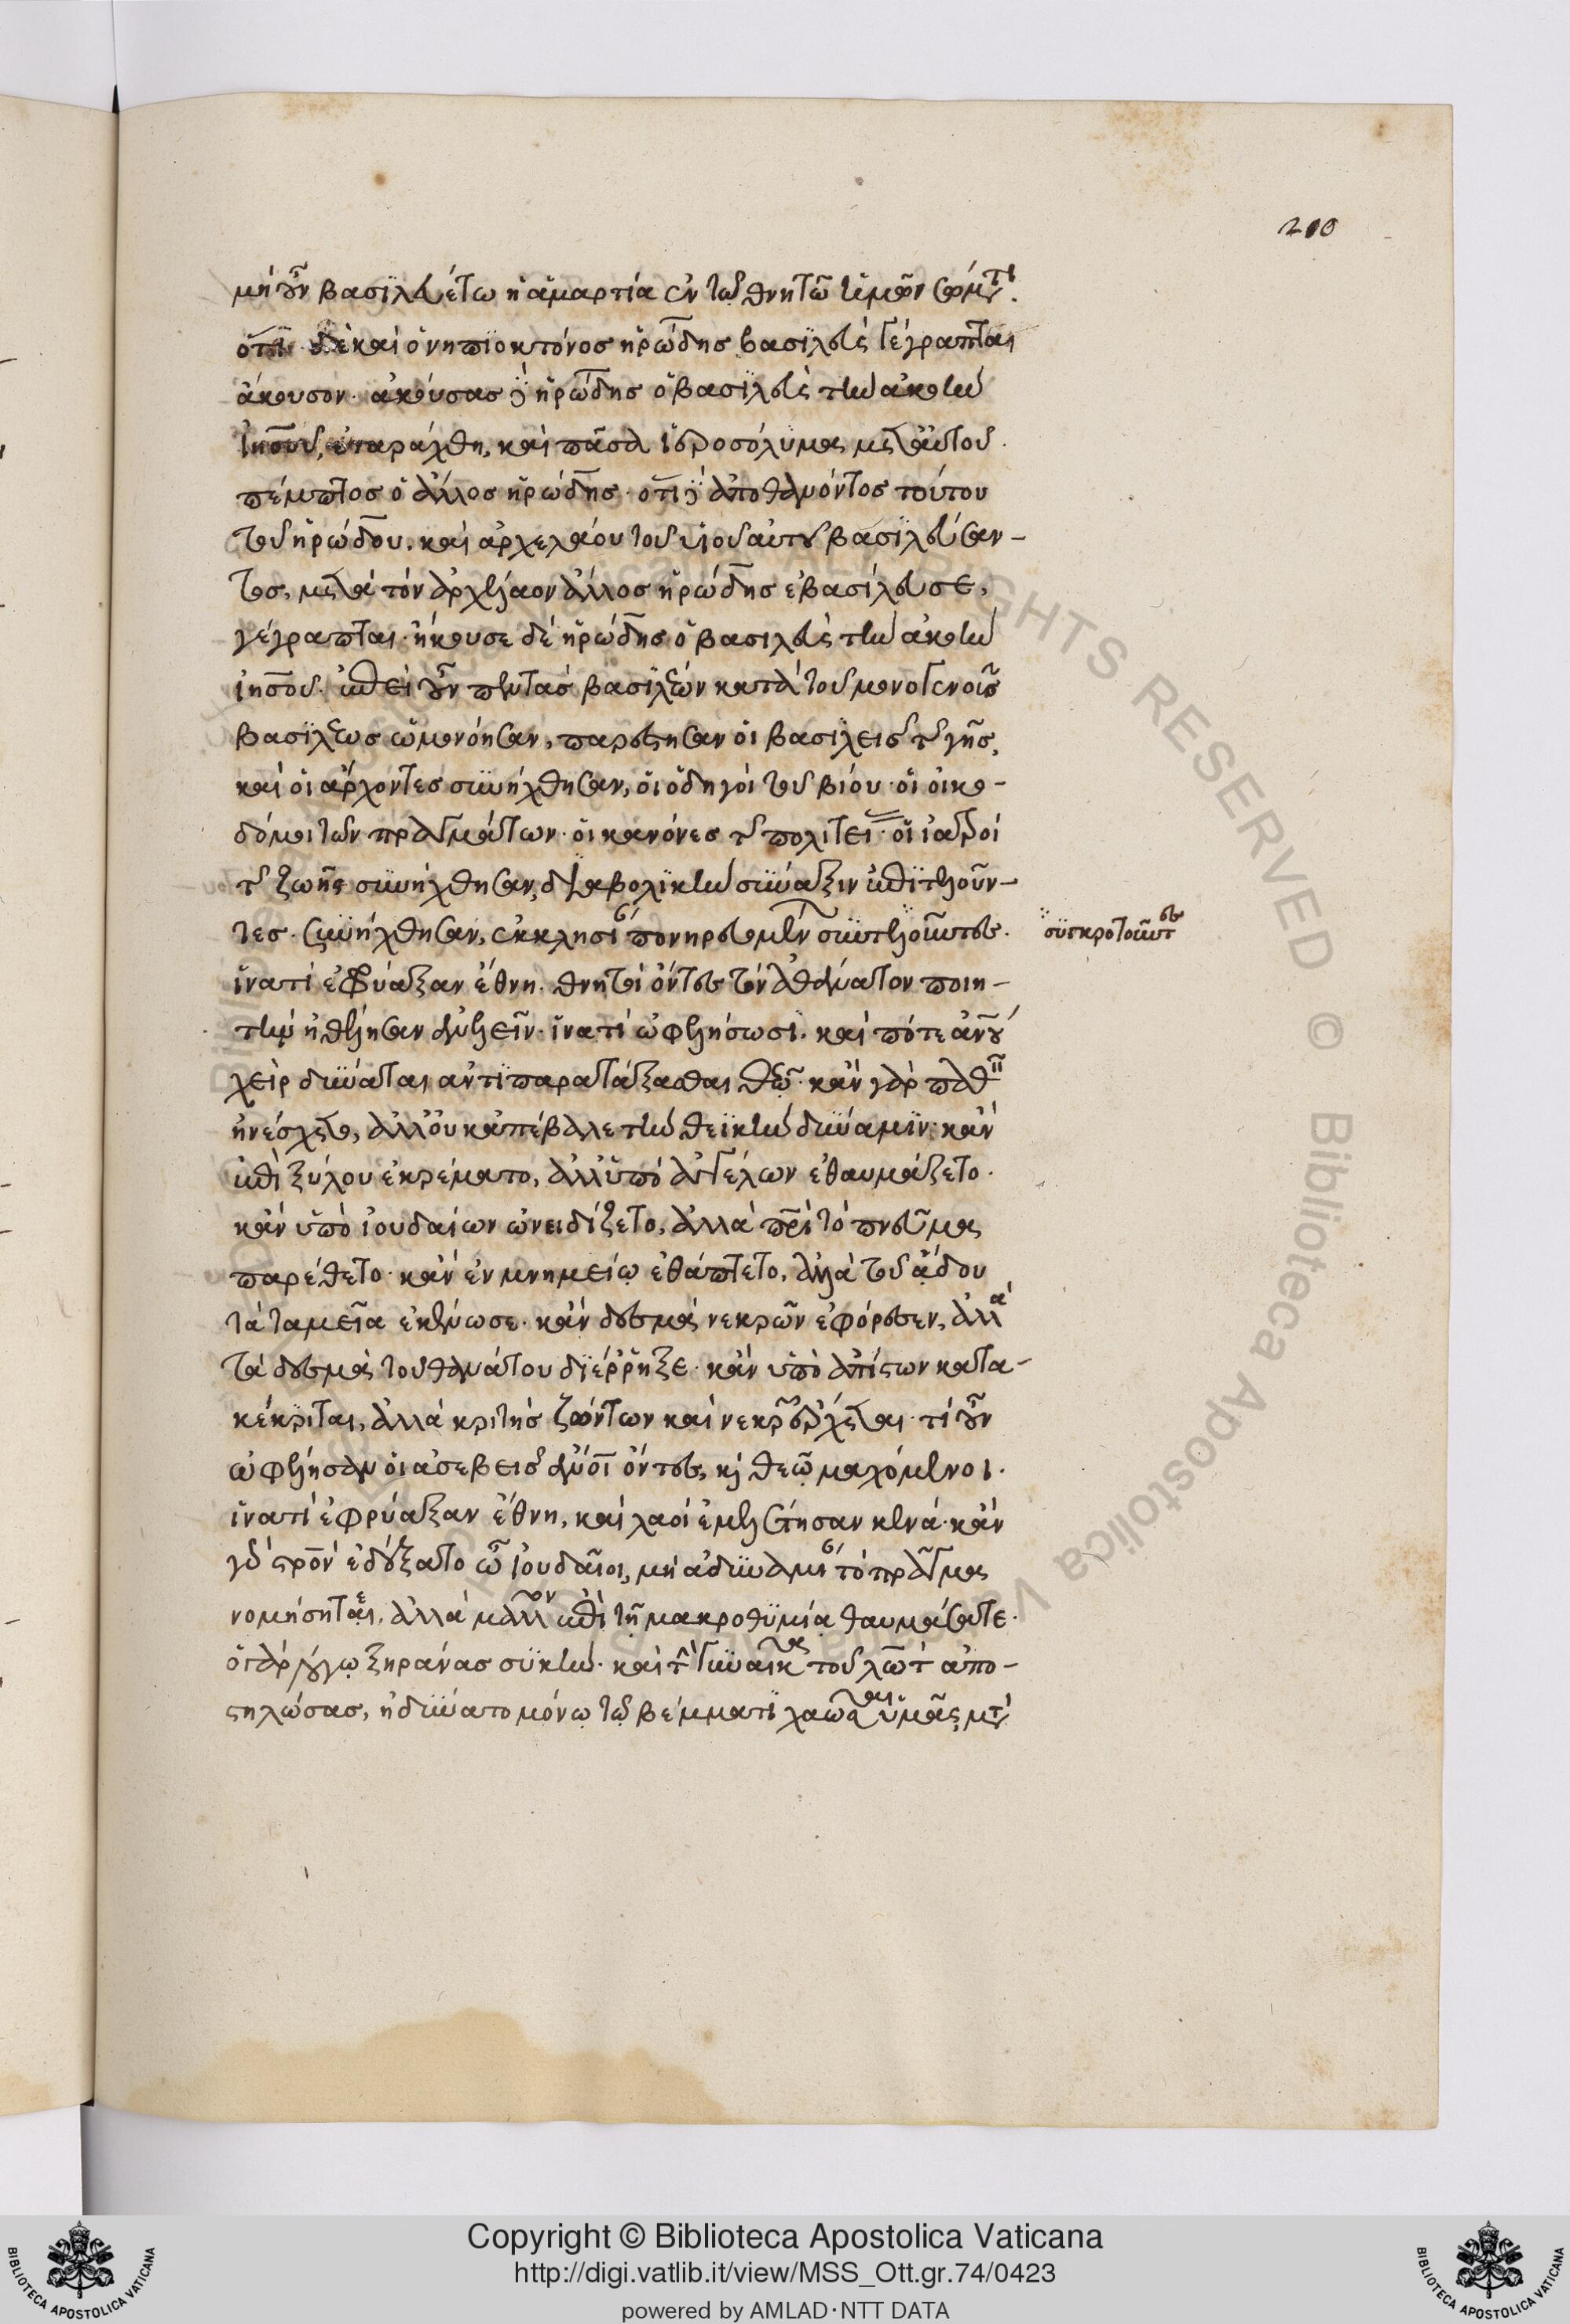 210
μὴ οὖν βασιλευέτω ἡ ἁμαρτία ἐν τῷ θνητῷ ὑμῶν σώματι.
ὅτι δὲ καὶ ὁ νηπιοκτόνος ἡρώδης βασιλεὺς γέγραπται
ἄκουσον. ἀκούσας δὲ ἡρώδης ὁ βασιλεὺς τὴν ἀκοὴν
ἰησοῦ, ἐταράχθη, καὶ πᾶσα ἱεροσόλυμα μετ' αὐτοῦ.
πέμπτος ὁ ἄλλος ἡρώδης. ὅτι δὲ ἀποθανόντος τούτου
τοῦ ἡρώδου, καὶ ἀρχελάου τοῦ υἱοῦ αὐτοῦ βασιλεύσαν-
τος, μετὰ τὸν ἀρχέλαον ἄλλος ἡρώδης ἐβασίλευσε,
γέγραπται. ἤκουσε δὲ ἡρώδης ὁ βασιλεὺς τὴν ἀκοὴν
ἰησοῦ. ἐπεὶ οὖν πεντὰς βασιλέων κατὰ τοῦ μονογενοῦς
βασιλέως ὡμονόησαν, παρέστησαν οἱ βασιλεῖς τῆς γῆς,
καὶ οἱ ἄρχοντες συνήχθησαν, οἱ ὁδηγοὶ τοῦ βίου. οἱ οἰκο-
δόμοι τῶν πραγμάτων. οἱ κανόνες τῆς πολιτείας. οἱ ἰατροὶ
τῆς ζωῆς συνήχθησαν, διαβολικὴν σύναξιν ἐπιτελοῦν-
τες. συνήχθησαν, ἐκκλησίαν πονηρευομένων συντελοῦντες.
συγκροτοῦντες
ἱνατί ἐφρύαξαν ἔθνη. θνητοὶ ὄντες τὸν ἀθάνατον ποιη-
τὴν ἠθέλησαν ἀνελεῖν. ἱνατί ὠφελήσωσι. καὶ πότε ἀνθρώπου
χεὶρ δύναται ἀντιπαρατάξασθαι θεῷ. κἂν γὰρ παθεῖν
ἠνέσχετο, ἀλλ' οὐκ ἀπέβαλε τὴν θεϊκὴν δύναμιν. κἂν
ἐπὶ ξύλου ἐκρέματο, ἀλλ' ὑπὸ ἀγγέλων ἐθαυμάζετο.
κἂν ὑπὸ ἰουδαίων ὠνειδίζετο, ἀλλὰ πατρὶ τὸ πνεῦμα
παρέθετο. κἂν ἐν μνημείῳ ἐθάπτετο, ἀλλὰ τοῦ ᾅδου
τὰ ταμεῖα ἐκένωσε. κἂν δεσμὰ νεκρῶν ἐφόρεσεν, ἀλλὰ
τὰ δεσμὰ τοῦ θανάτου διέρρηξε. κἂν ὑπὸ ἀπίστων κατα-
κέκριται, ἀλλὰ κριτὴς ζώντων καὶ νεκρῶν ἔρχεται. τί οὖν
ὠφέλησαν οἱ ἀσεβεῖς ἄνθρωποι ὄντες, καὶ θεῷ μαχόμενοι.
ἱνατί ἐφρύαξαν ἔθνη, καὶ λαοὶ ἐμελέτησαν κενά. κἂν
γὰρ σταυρὸν ἐδέξατο ὦ ἰουδαῖοι, μὴ ἀδυναμίαν τὸ πρᾶγμα
νομήσητε, ἀλλὰ μᾶλλον ἐπὶ τῇ μακροθυμίᾳ θαυμάσατε.
ὁ γὰρ λόγῳ ξηράνας συκῆν. καὶ τὴν γυναῖκα τοῦ λὼτ ἀπο-
στηλώσας, ἠδύνατο μόνῳ τῷ βλέμματι